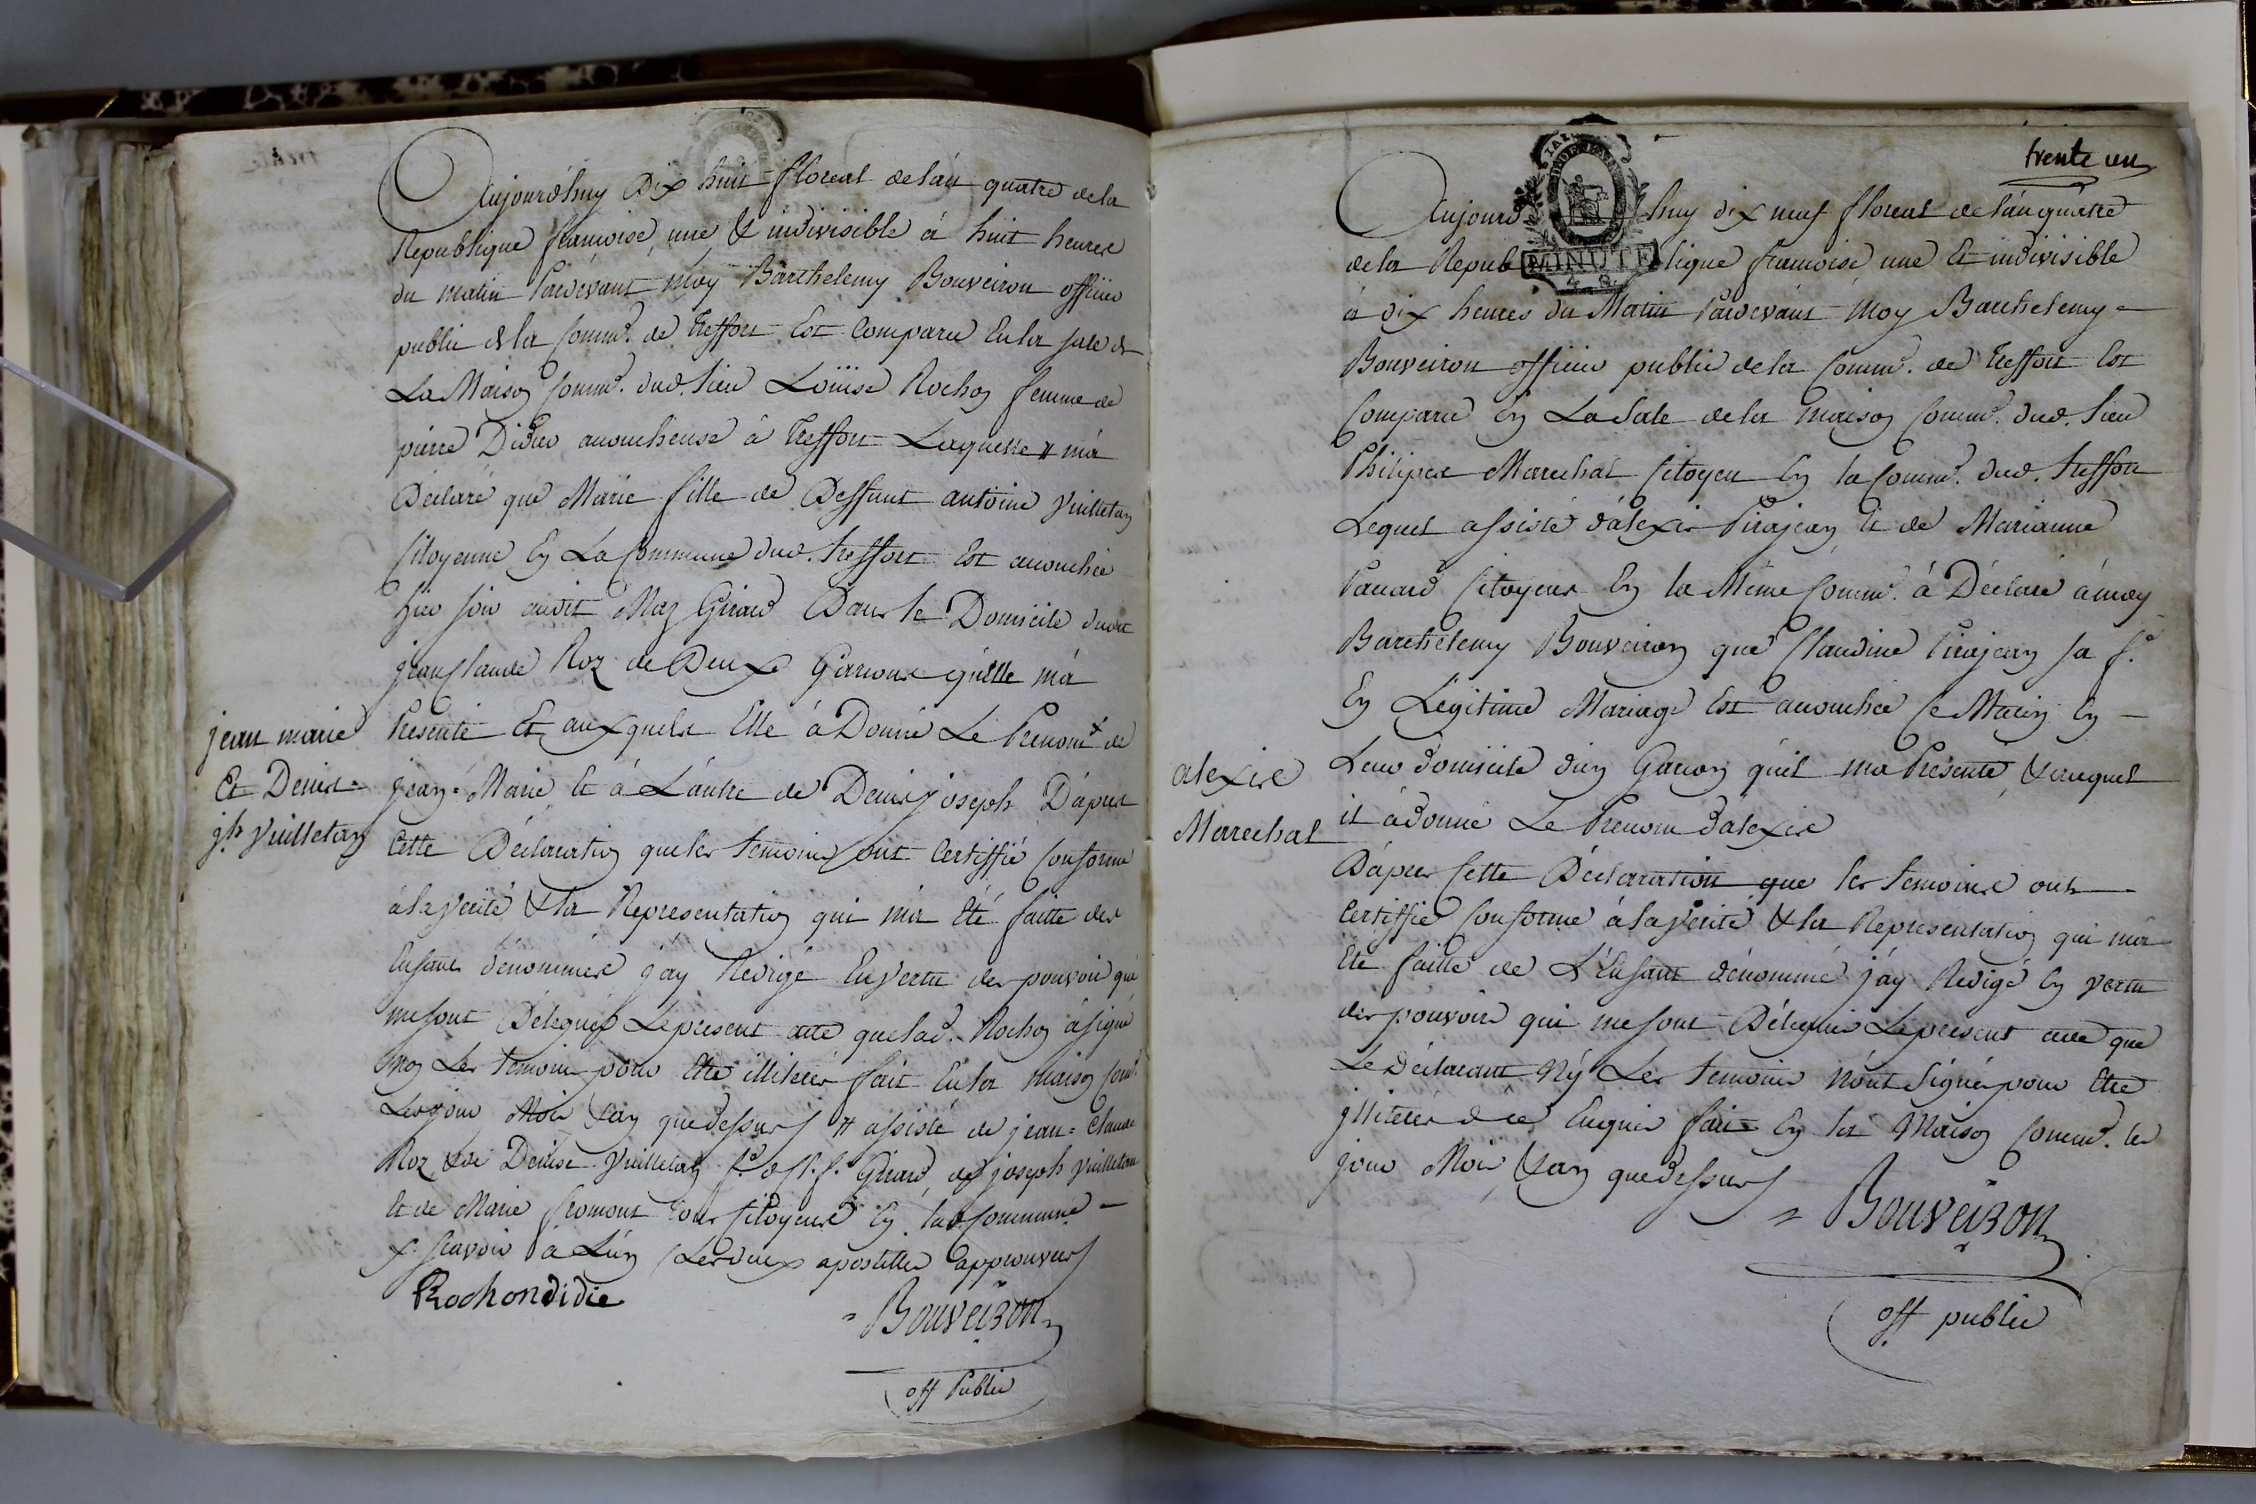 Aujourd'huy Dix huit floreal de l'an quatre de la
Republique francoise, une & indivisible à huit heures
du matin Pardevant moy Barthelemy Bouveiron officier
public de la Comm.e de Treffort Est Comparu En la sale de
La Maison Comm.e dud. lieu Loüise Rochon femme de
pierre Didier acoucheuse à Treffort Laquelle # m'a
Déclaré que Marie fille de Deffunt antoine Vuilleton
Citoyenne En La Commune dud. treffort Est acouchée
hier soir audit Maz Girard Dans le Domicile dudit
jean Claude Roz de Deux Garcons qu'elle m'a
Presenté Et auxquels Elle à Donné Le Prenom x de
jean=Marie Et à L'autre de Denis joseph D'après
Cette Déclaration que les temoins ont Certiffié Conforme
à la verité & la Representation qui m'a Eté faitte des
Enfans dénommés j'ay Redigé En vertu des pouvoirs qui
me sont Délegués Le present acte que lad. Rochon à signé
non Les temoins pour Etre illiterés fait En la maison Com.e
Les jour Mois & an que dessus # assisté de jean=Claude
Roz & de Denise Vuilleton f.e de Girard, de joseph Vuilleton
Et de Marie fromont tous Citoyens En lad. Commune
x scavoir à L'un Les deux apostilles approuvées
Rochon didie
Bouveiron
off Public
jean marie
Et Denis=
jh Vuilleton
trente un
Aujourd'huy dix neuf floreal de l'an quatre
de la Republique francoise une Et indivisible
MINUTE
à dix heures du Matin Pardevant Moy Barthelemy
Bouveiron officier public de la Comm.e de Treffort Est
Comparu En La Sale de la maison Comm.e dud. lieu
Philipes Marechal Citoyen En la Comm.e dud. treffort
Lequel assisté d'alexis Pirajean Et de Marianne
Panard Citoyens En la Même Comm.e à Déclaré à moy
Barthelemy Bouveiron que Claudine Pirajean sa f.e
En Légitime Mariage Est acouchée Ce Matin En
Leur domicile d'un Garcon qu'il m'a Presenté, & auquel
il à donné Le Prenom d'alexis
D'après Cette Déclaration que les temoins ont
Certiffié Conforme à la verité & la Representation qui m'a
Eté faitte de L'Enfant dénommé j'ay Redigé En vertu
des pouvoirs qui me sont Délegués Le present acte que
Le Déclarant Ny Les temoins N'ont Signé pour Etre
jlliterés de ce Enquis fait En la Maison Comm.e les
jour Mois, & an que dessus
Bouveiron
off public
alexis
Marechal